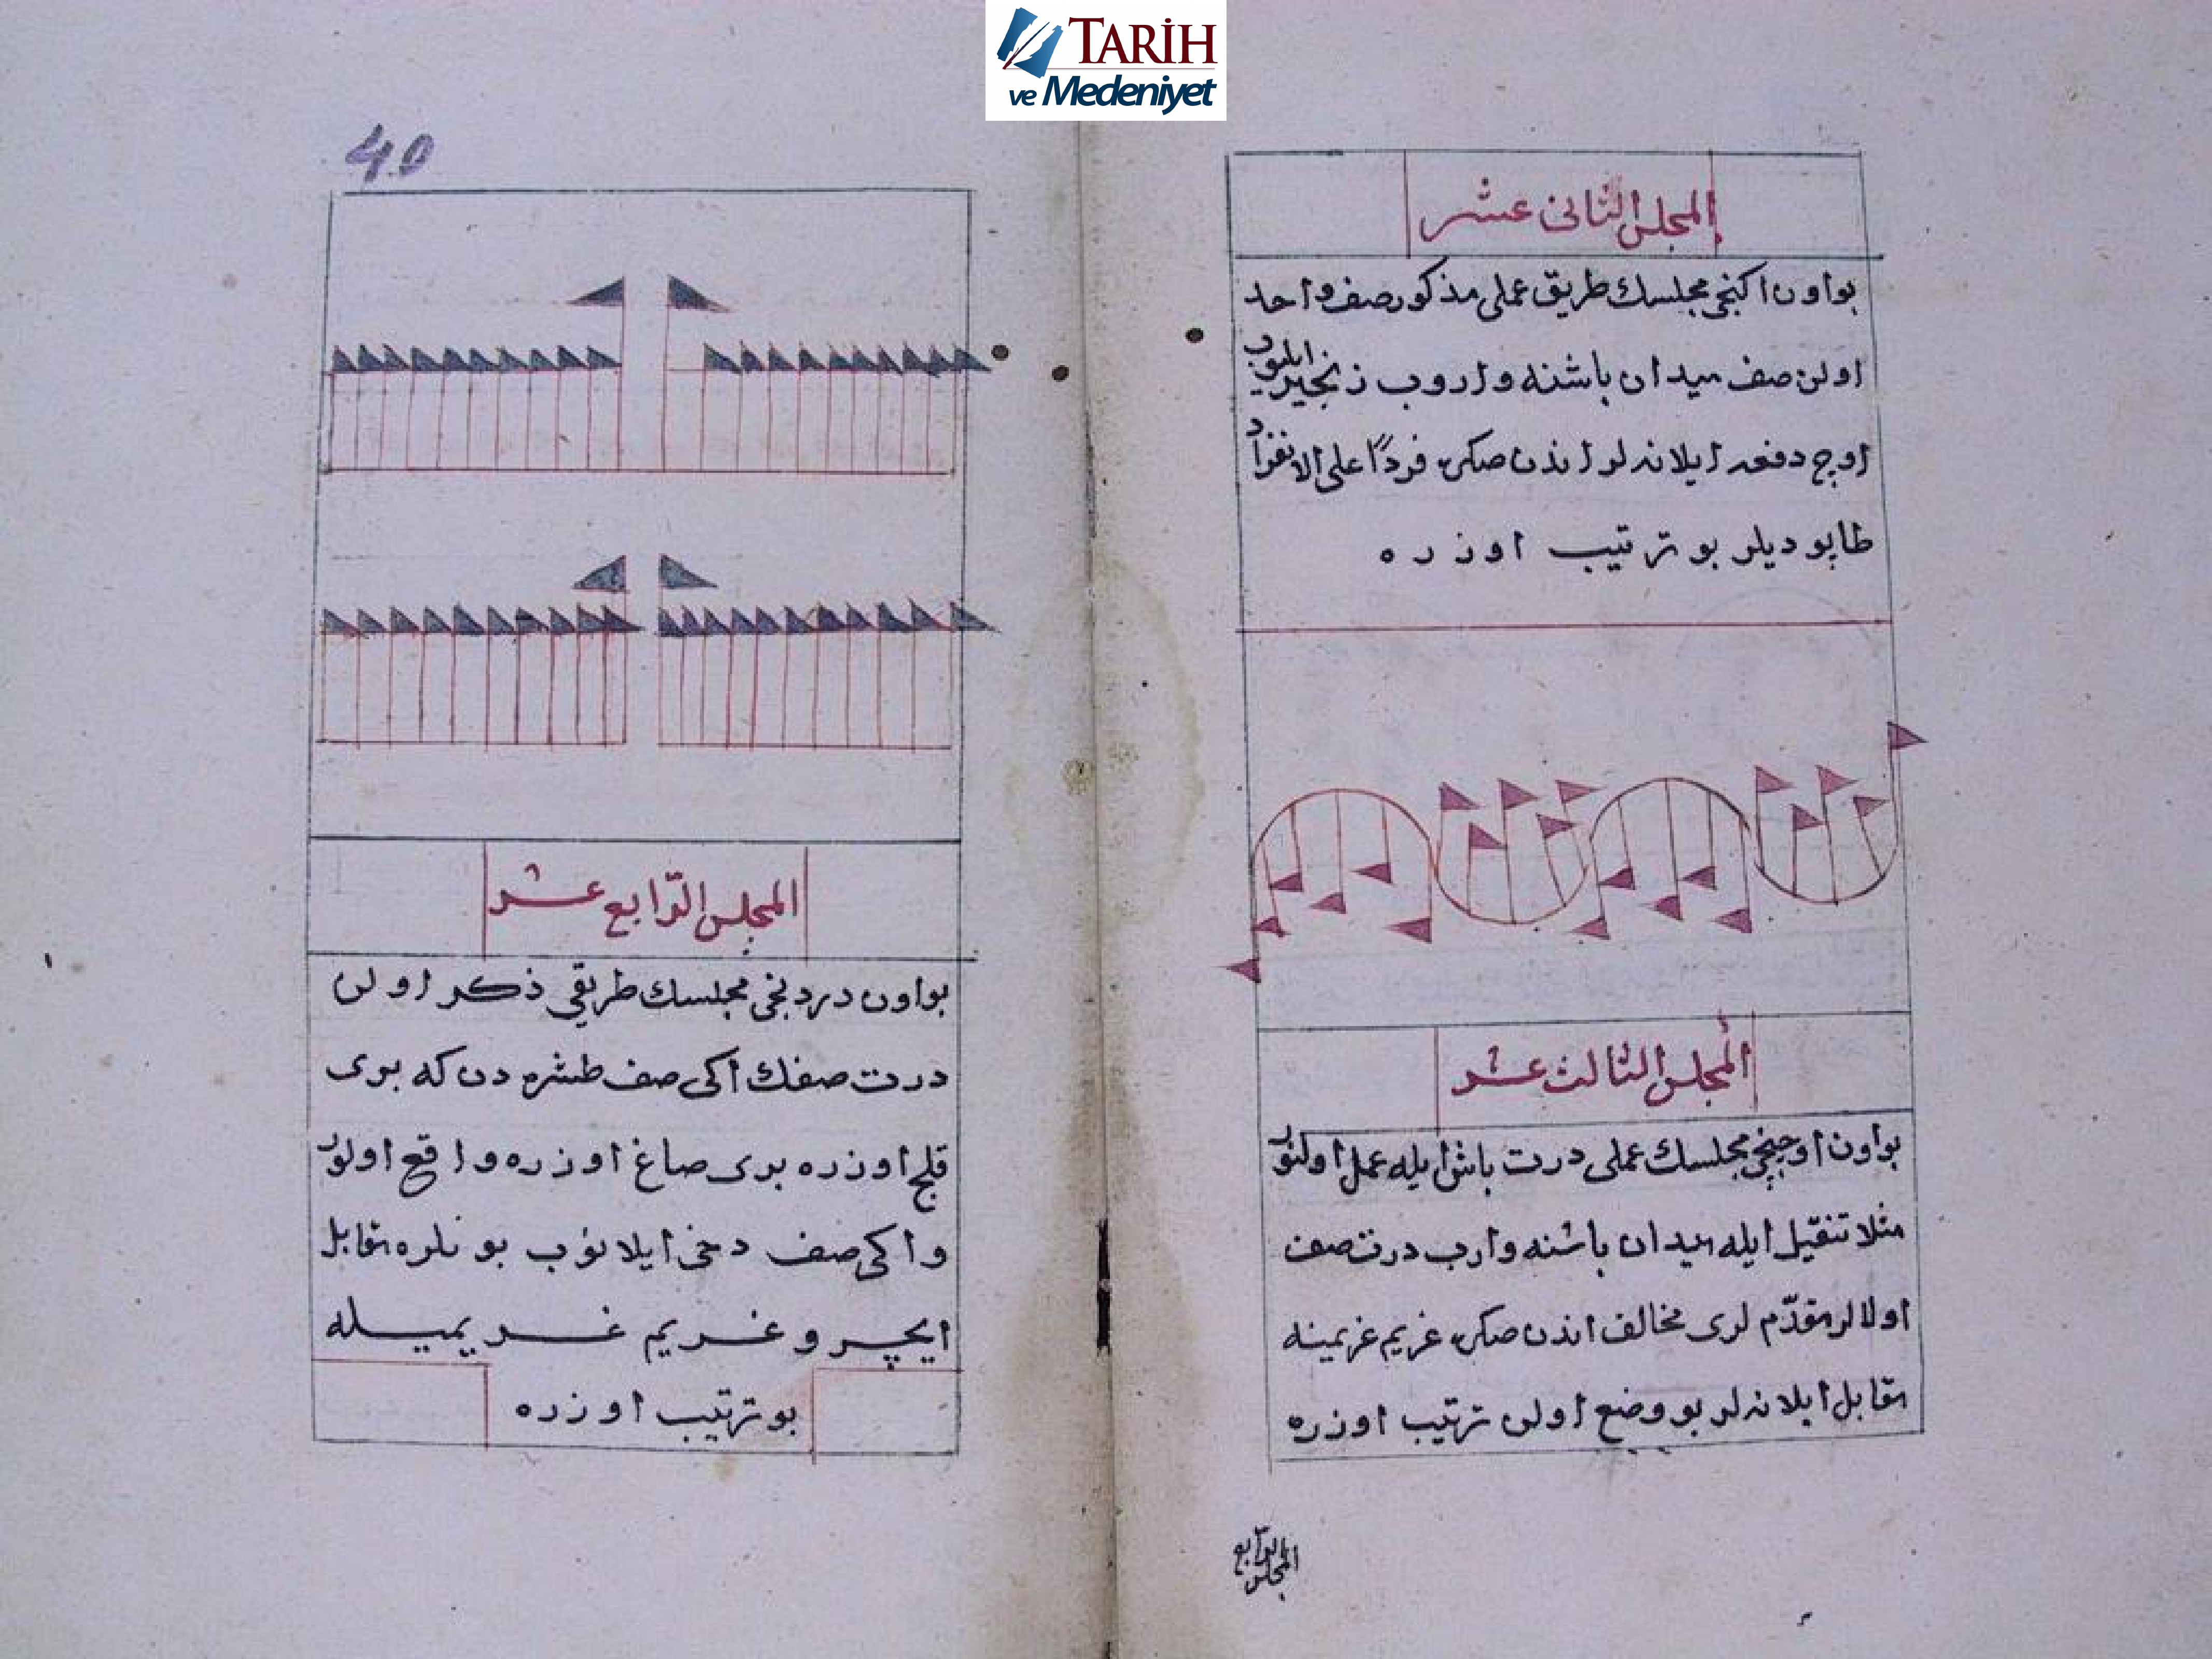 TARİH
ve Medeniyet
المجلس الثانى عشر
بو اون اكنجى مجلسك طريق عملى مذكور صف واحد
اولن صف ميدان باشنه واروب زنجير ايليوب
اوچ دفعه ايلانه لر اندن صكره فردًا على الانفراد
طاپو ديلر بو ترتيب اوزره
المجلس الثالث عشر
بو اون اوچنجى مجلسك عملى درت باش ايله عمل اولنور
مثلا تنقيل ايله ميدان باشنه وارب درت صف
اولالر مقدّم لرى مخالف اندن صكره غريم غريمينه
مقابل ايلانه لر بو وضع اولن ترتيب اوزره
المجلس الرّابع
40
المجلس الرّابع عشر
بو اون دردنجى مجلسك طريقى ذكر اولن
درت صفك اكى صف طشره دن كه برى
قلج اوزره برى صاغ اوزره واقع اولور
و اكى صف دخى ايلانوب بونلره مقابل
ايچر و غريم غريميله
بو ترتيب اوزره